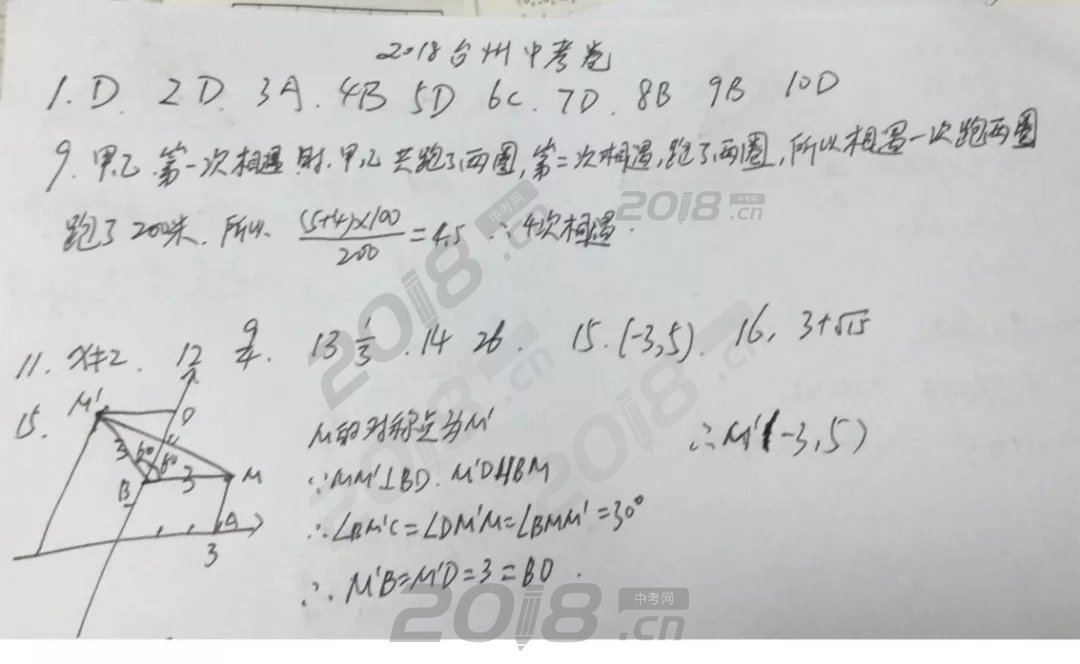 2018台州中考卷
1.D. 2D. 3A. 4B 5D 6C. 7D. 8B 9B 10D
9. 甲、乙.第一次相遇时.甲、乙共跑了两圈,第二次相遇,跑了两圈,所以相遇一次跑两圈
跑了200米. 所以 (5+4)×100/200=4.5 ∴4次相遇.
11. x≠2. 12 9/4. 13 1/3. 14 26. 15.(-3,5). 16, 3+√15
15.
M'
D
C
3 60° 60°
B 3 M
A
3
M的对称点为M'
∵MM'⊥BD. M'D∥BM
∴∠BM'C=∠DM'M=∠BMM'=30°
∴M'B=M'D=3=BD.
∴M'(-3,5)
2018.cn
中考网
2018.cn
中考网
2018.cn
2018.cn
中考网